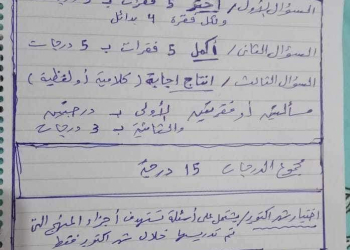 السؤال الأول / اختر 5 فقرات
ولكل فقرة 4 بدائل
السؤال الثاني / أكمل 5 فقرات بـ 5 درجات
السؤال الثالث / إنتاج إجابة ( كلامية أو لفظية )
مسألتين أو فقرتين الأولى بـ درجتين
والثانية بـ 3 درجات
مجموع الدرجات 15 درجة
اختبار شهر أكتوبر / يشتمل على أسئلة تستهدف أجزاء المنهج التي
تم تدريسها خلال شهر أكتوبر فقط